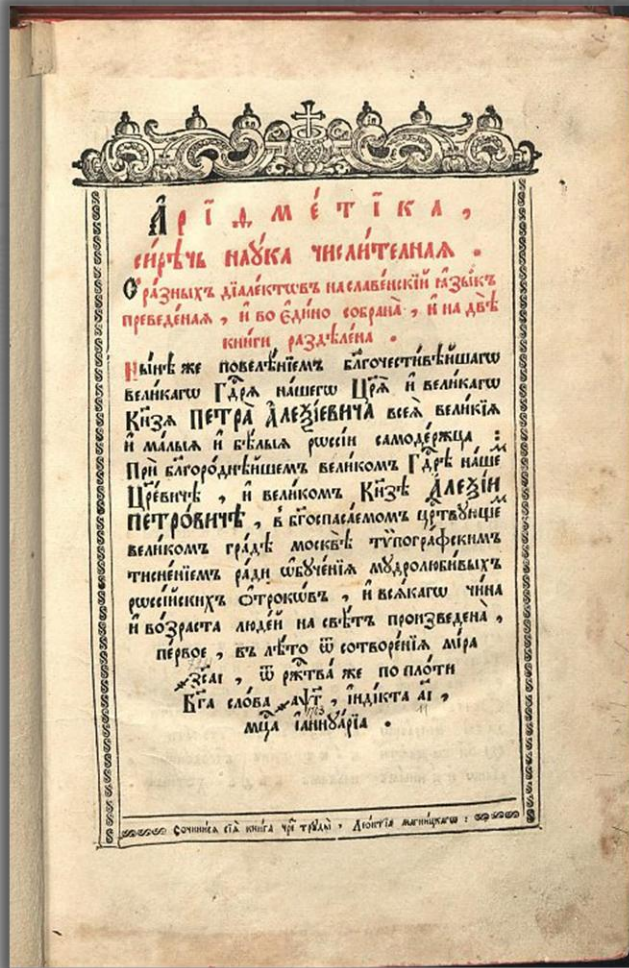 А҆рїѳме́тїка,
си́рѣчь наꙋ́ка числи́телнаѧ.
С̾ ра́зныхъ дїале́ктѡвъ на славе́нскїй ꙗ҆зы́къ
преведе́наѧ, и҆ во є҆ди́но собрана̀, и҆ на двѣ̀
кни́ги раздѣле́на.
Ны́нѣ же повелѣ́нїемъ бл҃гочести́вѣйшагѡ
вели́кагѡ Гд҇рѧ на́шегѡ Цр҃ѧ̀ и҆ вели́кагѡ
Кн҃зѧ ПЕТРА̀ А҆ЛЕѮІ́ЕВИЧА всеѧ̀ вели́кїѧ
и҆ ма́лыѧ и҆ бѣ́лыѧ рѡссі́и самоде́ржца :
Прѝ бл҃горо́днѣйшемъ вели́комъ Гд҇рѣ на́шемъ
Цр҃е́вичѣ, и҆ вели́комъ Кн҃зѣ А҆ЛЕѮІ́И
ПЕТРО́ВИЧѢ, в̾ бг҃оспаса́емомъ ца́рствꙋющемъ
вели́комъ гра́дѣ москвѣ̀ тѷпогра́фскимъ
тисне́нїемъ ра́ди ѡ҆бꙋче́нїѧ мꙋдролюби́выхъ
рѡссі́йскихъ ѻ҆́трокѡвъ, и҆ всѧ́кагѡ чи́на
и҆ во́зраста люде́й на свѣ́тъ произведена̀,
пе́рвое, въ лѣ́то ѿ сотворе́нїѧ мі́ра
҂зсаі, ѿ рж҇тва̀ же по пло́ти
Бг҃а сло́ва ҂аѱг, і҆нді́кта аі,
1703 11
мц҇а і҆аннꙋа́рїа.
Сочини́сѧ сїѧ̀ кни́га чре́з̾ трꙋды̀, Лео́нтїа магни́цкагѡ :